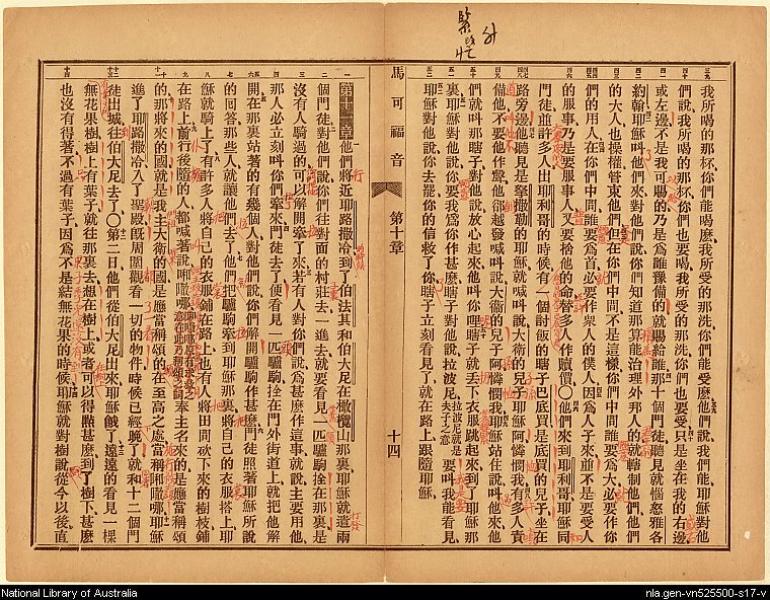 緊收忙 外
我所喝的那杯、你們能喝麽、我所受的那洗、你們能受麽、他們說、我們能、耶穌對他
們說、我所喝的那杯、你們也要喝、我所受的那洗、你們也要受、只是坐在我的右邊
或左邊、不是我可賜的、乃是爲誰豫備的、就賜給誰、那十個門徒聽見、就惱怒雅各
約翰、耶穌叫他們來、對他們說、你們知道那算能治理外邦人的、就轄制他們、他們
的大人也操權管束他們、只在你們中間不是這樣、你們中間誰要爲大、必要作你
們的用人、在你們中間誰要爲首、必要作衆人的僕人、因爲人子來、並不是要受人
的服事、乃是要服事人、又要捨他的命、替多人作贖價、〇他們來到耶利哥、耶穌同
門徒並許多人、出耶利哥的時候、有一個討飯的瞎子、巴底買是底買的兒子、坐在
路旁邊、他聽見是拏撒勒的耶穌、就喊叫說、大衛的兒子耶穌阿憐憫我、有多人責
備他、不要他作聲、他郤越發喊叫說、大衛的兒子阿憐憫我、耶穌站住、說叫他來、他
們就叫那瞎子、對他說、放心起來、他叫你哩、瞎子就丟下衣服、跳起來、到了耶穌那
裏、耶穌對他說、你要我爲你作甚麽、瞎子對他說、拉波尼、拉波尼就是夫子之意、要叫我能看見、
耶穌對他說、你去罷、你的信救了你、瞎子立刻看見了、就在路上跟隨耶穌、
馬可福音 第十章 十四
第十一章 他們將近耶路撒冷、到了伯法其和伯大尼、在橄欖山那裏、耶穌就遣兩
個門徒、對他們說、你們往對面的村莊去、一進去就要看見一匹驢駒拴在那裏、是
沒有人騎過的、可以解開牽了來、若有人對你們說、爲甚麽作這事、就說主要用他、
那人必立刻叫你們牽來、門徒去了、便看見一匹驢駒、拴在門外街道上、就把他解
開、在那裏站著的有幾個人、對他們說、你們解開驢駒作甚麽、門徒照著耶穌所說
的回答、那些人就讓他們去了、他們把驢駒牽到耶穌那裏、將自己的衣服搭上、耶
穌就騎上了、有許多人將自己的衣服鋪在路上、也有人將田間砍下來的樹枝鋪
在路上、前行後隨的人、都喊著說、和撒那、奉主名來的、是應當稱頌
的、那將來的國、就是我主大衛的國、是應當稱頌的、在至高之處當稱和撒那、耶穌
進了耶路撒冷、入了聖殿、旣周圍觀看一切的物件、時候已經晚了、就和十二個門
徒出城、往伯大尼去了、〇第二日、他們從伯大尼出來、耶穌餓了、遠遠的看見一棵
無花果樹、樹上有葉子、就往那裏去、想在樹上或者可以得點甚麽、到了樹下、甚麽
也沒有得著、不過有葉子、因爲不是結無花果的時候、耶穌就對樹說、從今以後直
National Library of Australia
nla.gen-vn525500-s17-v